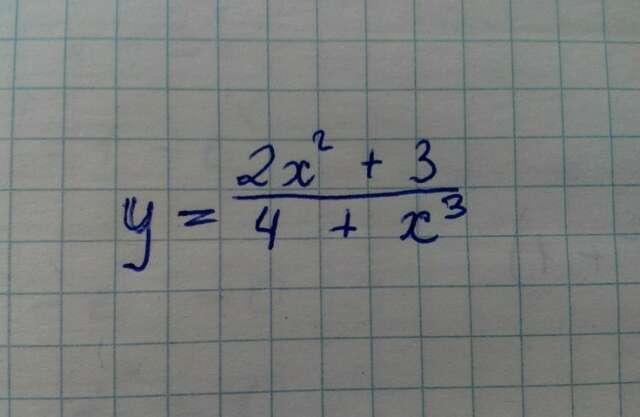 y = (2x² + 3)/(4 + x³)